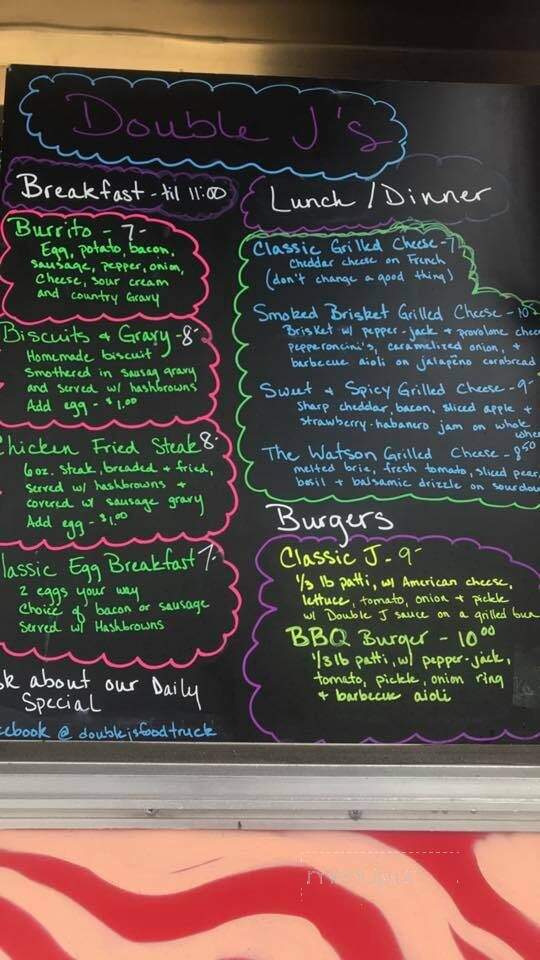 Double J's
Breakfast - til 11:00
Burrito - 7-
Egg, potato, bacon,
sausage, pepper, onion,
cheese, sour cream
and country Gravy
Biscuits & Gravy - 8-
Homemade biscuit
smothered in sausag gravy
and served w/ hashbrowns
Add egg - $1.00
Chicken Fried Steak 8-
6oz. steak, breaded & fried,
served w/ hashbrowns &
covered w/ sausage gravy
Add egg - $1.00
lassic Egg Breakfast 7-
2 eggs your way
Choice of bacon or sausage
Served w/ Hashbrowns
sk about our Daily
Special
cebook @ doublejsfoodtruck
Lunch / Dinner
Classic Grilled Cheese - 7
cheddar cheese on French
(don't change a good thing)
Smoked Brisket Grilled Cheese - 10
Brisket w/ pepper-jack & provolone chee
pepperoncini's, caramelized onion, &
barbecue aioli on jalapeño cornbread
Sweet & Spicy Grilled Cheese - 9-
Sharp cheddar, bacon, sliced apple &
strawberry-habanero jam on whole
whea
The Watson Grilled Cheese - 8.50
melted brie, fresh tomato, sliced pear,
basil & balsamic drizzle on sourdou
Burgers
Classic J - 9-
1/3 lb patti, w/ American cheese,
lettuce, tomato, onion & pickle
w/ Double J sauce on a grilled bun
BBQ Burger - 10.00
1/3 lb patti, w/ pepper-jack,
tomato, pickle, onion ring
& barbecue aioli